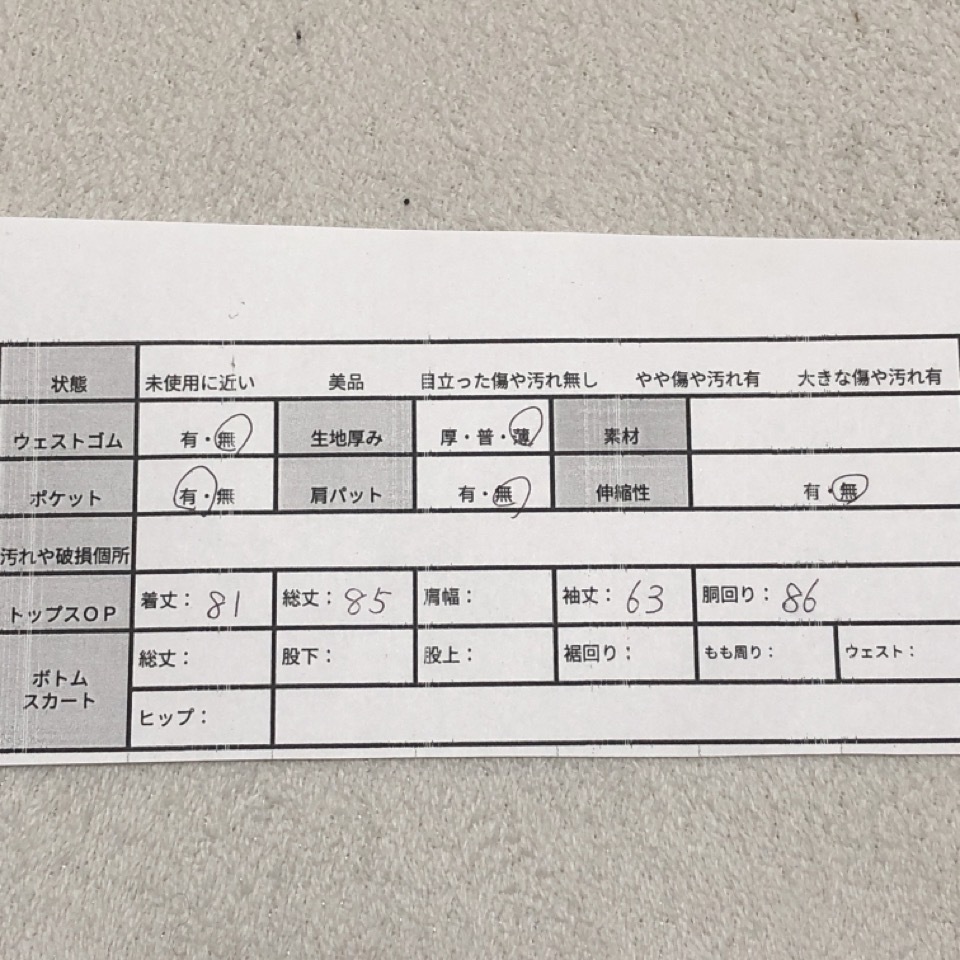 状態 未使用に近い 美品 目立った傷や汚れ無し やや傷や汚れ有 大きな傷や汚れ有
ウェストゴム 有・無 生地厚み 厚・普・薄 素材
ポケット 有・無 肩パット 有・無 伸縮性 有・無
汚れや破損個所
トップスOP 着丈： 81 総丈： 85 肩幅： 袖丈： 63 胴回り： 86
ボトム
スカート
総丈： 股下： 股上： 裾回り： もも周り： ウェスト：
ヒップ：